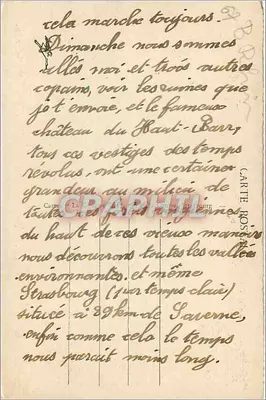 cela marche toujours.
Dimanche nous sommes
allés moi et trois autres
copains, voir les ruines que
je t'envoie, et le fameux
château du Haut-Barr,
tous ces vestiges des temps
revolus, ont une certaine
grandeur au milieu de
toutes
du haut de ces vieux manoirs
nous découvrons toutes les vallées
environnantes et même
Strasbourg (par temps clair)
située à 39 km de Saverne,
enfin comme cela le temps
nous parait moins long.
CARTE POSTALE
CPAPHIL